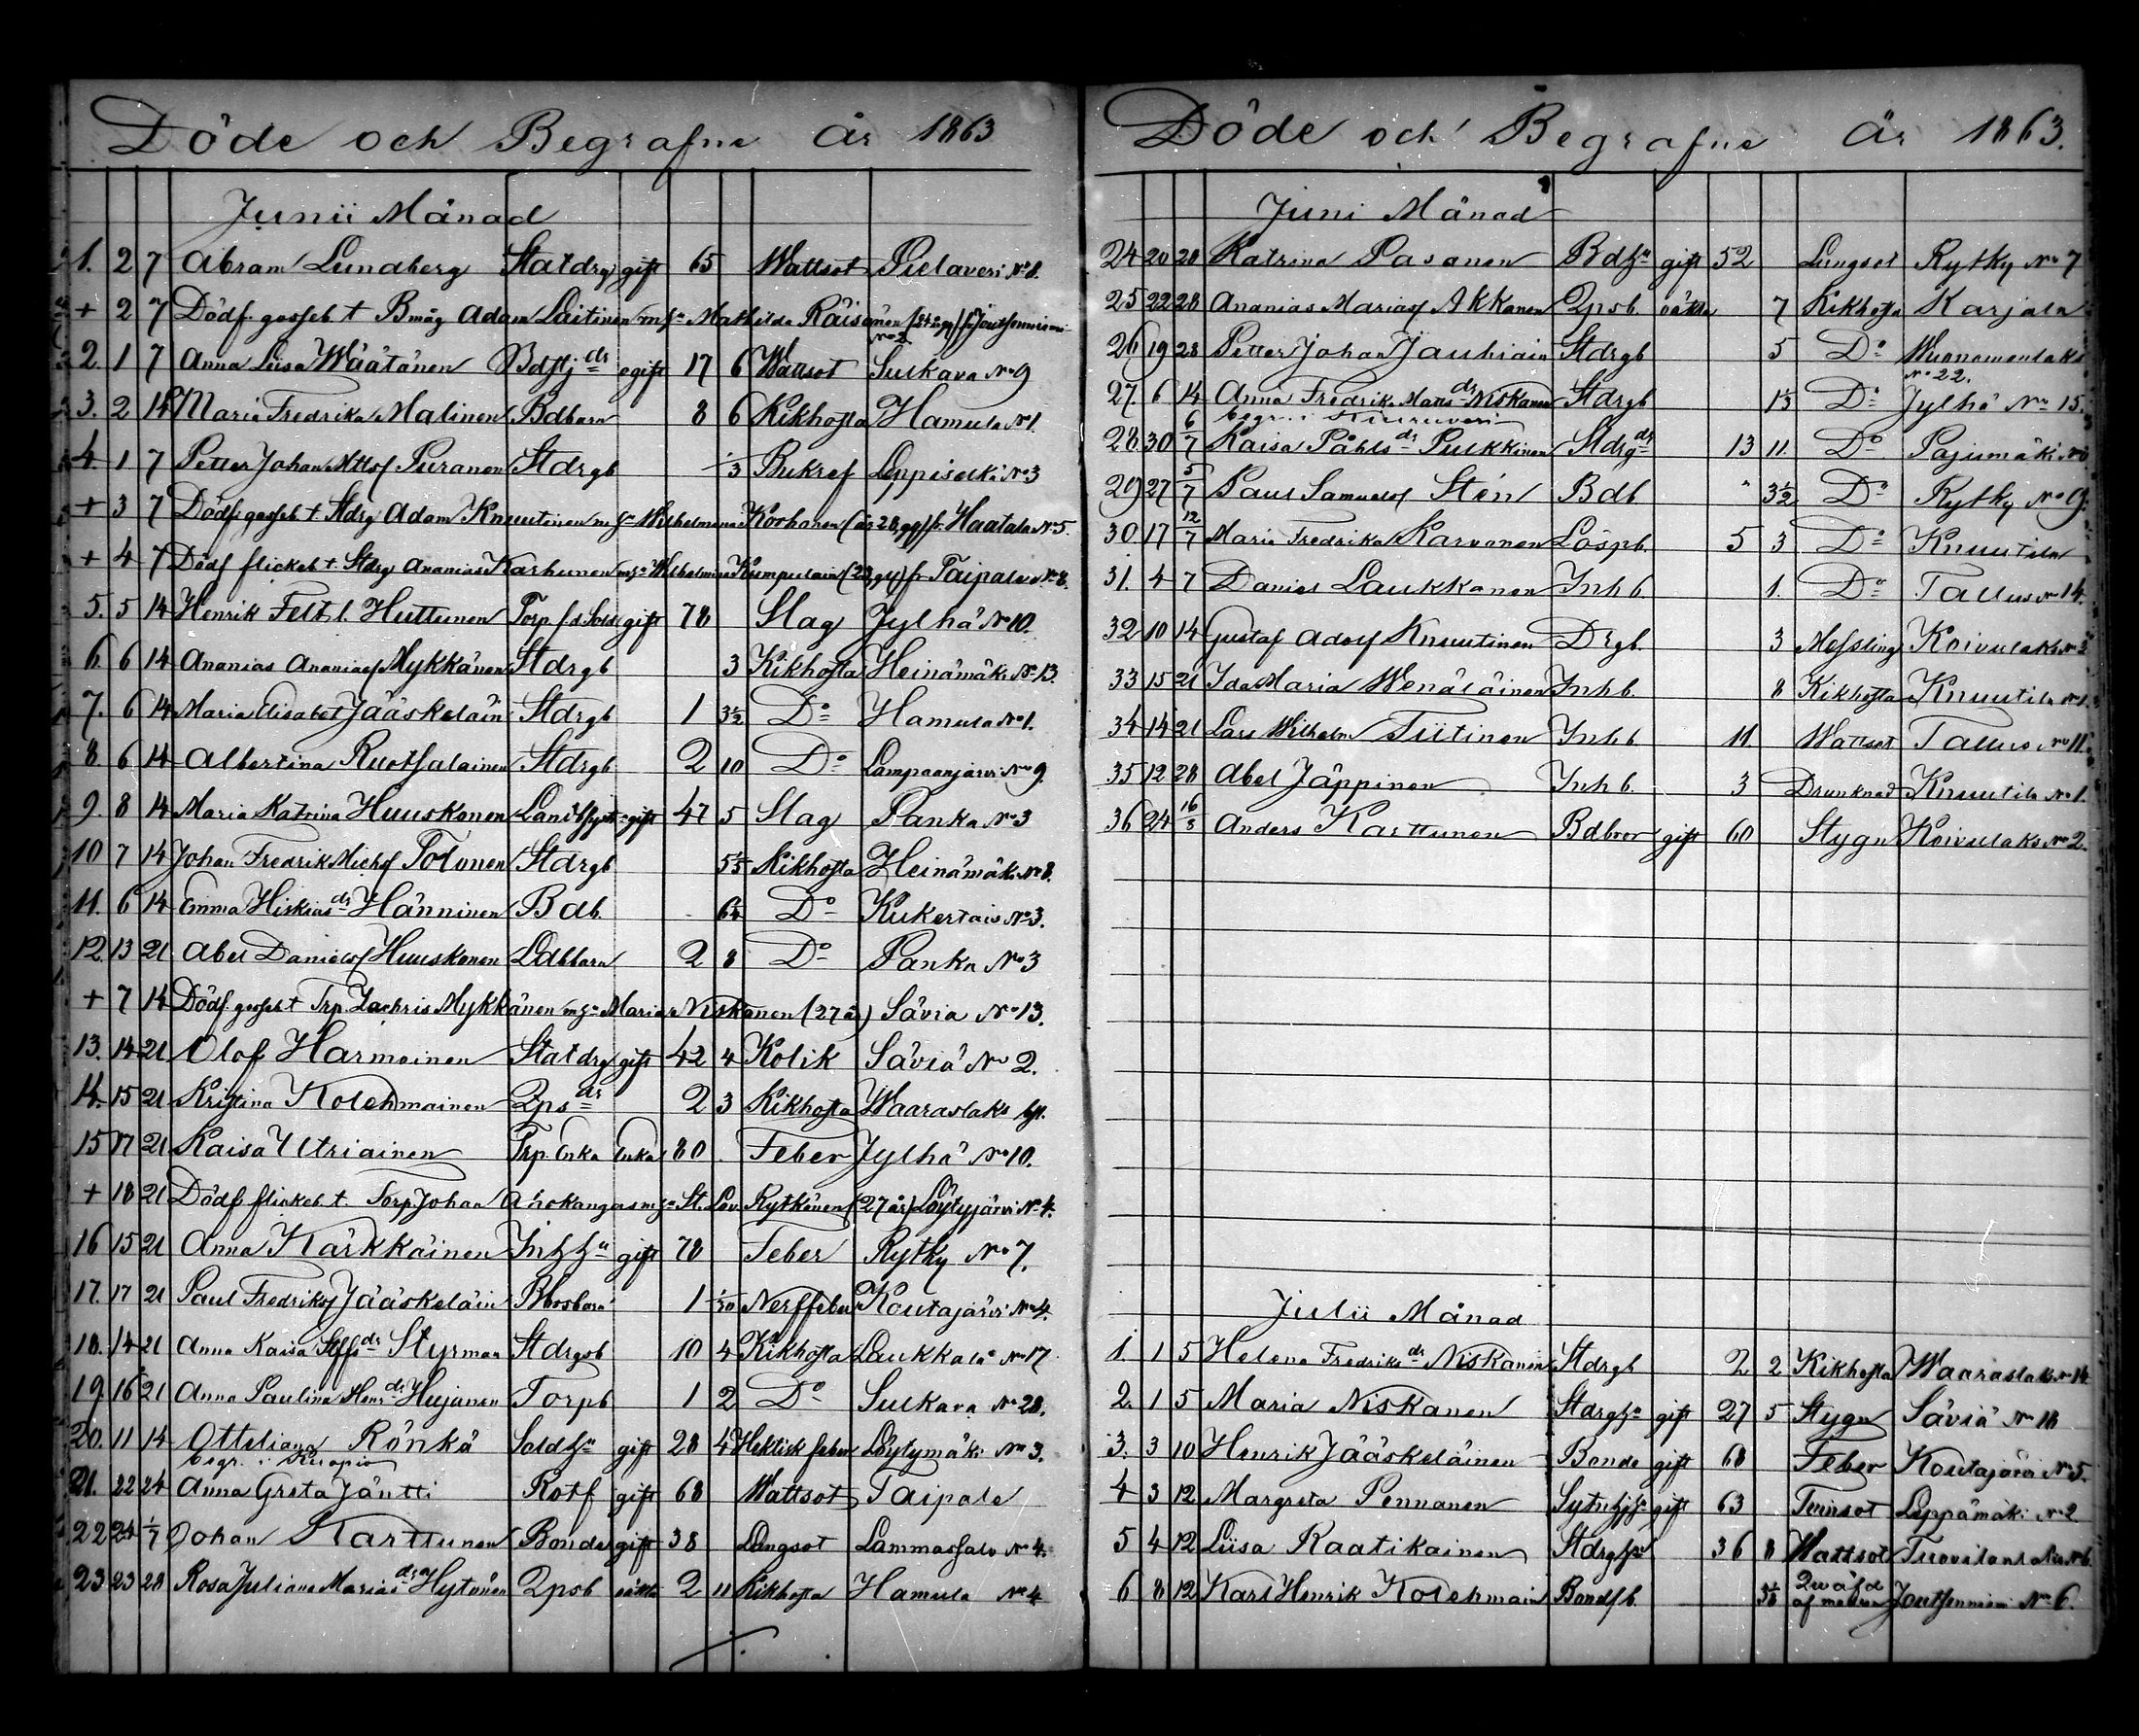 Döde och Begrafne År 1863
Junii Månad
1. 2 7 Abram Lundberg Statdrg gift 65 Wattsot Pielaveri No 8.
+ 2 7 Dödf. gosseb t Bmåg Adam Laitinen m. ha Mathilda Räisänen (24 åg) fr Joutsenniemi No 2
2. 1 7 Anna Liisa Wäätänen Bdstj dr ogift 17 6 Wattsot Sulkava No 9
3. 2 14 Maria Fredrika Malinen Bdbarn 8 6 Kikhosta Hamula No 1.
4. 1 7 Petter Johan Mttsf Puranen Stdrgb 1/3 Bukref Leppiselkä No 3
+ 3 7 Dödf. gosseb t. Stdrg Adam Knuutinen m. ha Wilhelmina Korhonen (år 28, gg) fr. Haatala No 5.
+ 4 7 Dödf flickeb t. Stdrg Ananias Karhunen m ha Wilhelmina Kumpulain (23 gg) fr Taipale No 8.
5. 5 14 Henrik Felt l. Huttunen Torp f d Sold gift 78 Slag Jylhä No 10.
6. 6 14 Ananias Ananiasf Mykkänen Stdrgb 3 Kikhosta Heinämäki No 13.
7. 6 14 Maria Elisabet Jääskeläin Stdrgb 1 3½ Do Hamula No 1.
8. 6 14 Albertina Ruotsalainen Stdrgb 2 10 Do Lampaanjärvi No 9.
9. 8 14 Maria Katrina Huuskonen gift 47 5 Slag Panka No 3
10 7 14 Johan Fredrik Michsf Tolonen Stdrgb Kikhosta Heinämäki No 8.
11. 6 14 Emma Hiskias dr Hänninen Bdb. Do Kukertais No 3.
12. 13 21 Abel Danielsf Huuskonen Ldbbarn 2 8 Do Panka No 3
+ 7 14 Dödf. gosseb t Trp. Zachris Mykkänen m ha Maria Niskanen (27 år) Säviä No 13.
13. 14 21 Olof Harmoinen Statdrg gift 42 4 Kolik Säviä No 2.
14. 15 21 Kristina Kolehmainen Qps dr 2 3 Kikhosta Waaraslaks
15 17 21 Kaisa Utriainen Trp. Enka Enka 80 Feber Jylhä No 10.
+ 18 21 Dödf flickeb t. Torp. Johan Ahokangas m ha St. Lov. Rytkönen (27 år) Löytyjärvi No 4.
16 15 21 Anna Kärkkäinen Inh ha gift 78 Feber Rytky No 7.
17. 17 21 Paul Fredriksf Jääskeläin 1 Nerffeber Koutajärvi No 4.
18. 14 21 Anna Kaisa Staffs dr Styrman Stdrgsb 10 4 Kikhosta Laukkala No 17
19 16 21 Anna Paulina Henr. dr Hujanen Torpb 1 2 Do Sulkava No 28.
20. 11 14 Otteliana Rönkä Sold ha gift 28 4 Hektisk feber Löytymäki No 3.
begr. i Kuopio
21. 22 24 Anna Greta Jäntti Rotf gift 68 Wattsot Taipale
22 24 1/7 Johan Karttunen Bonde gift 38 Lungsot Lammassalo No 4.
23 23 28 Rosa Juliana Marias dr Hytönen Qpsb oäkta 2 11 Kikhosta Hamula No 4
Döde och Begrafne År 1863.
Juni Månad
24 20 28 Katrina Pasanen Bdha gift 52 Lungsot Rytky No 7
25 22 28 Ananias Mariasf Akkanen Qpsb. oäkta 7 Kikhosta Karjala
26 19 28 Petter Johan Jauhiain Stdrgb 5 Do Wuonamonlaks No 22.
27. 6 14 Anna Fredrika Matts dr Niskanen Stdrgb 1⅓ Do Jylhä No 15.
begr. i Kiuruvesi
28. 30 6/7 Kaisa Påhls dr Pulkkinen Stdrg dr 13 11. Do Pajumäki No
29 27 5/7 Paul Samuelsf Stén Bdb " 3½ Do Rytky No 9.
30. 17 12/7 Maria Fredrika Karvonen Löspb. 5 3 Do Knuutila
31. 4 7 Daniel Laukkanen Inhb. 1. Do Tallus No 14.
32 10 14 Gustaf Adolf Knuutinen Drgb. 3 Messling Koivulaks No 2
33 15 21 Ida Maria Wenäläinen Inhb. 8 Kikhosta Knuutila No 1.
34 14 21 Lars Wilhelm Tiitinen Inhb 11 Wattsot Tallus No 11.
35 12 28 Abel Jäppinen Inhb. 3 Drunknad Knuutila No 1.
36 24 16/8 Anders Karttunen Bdbror gift 60 Stygn Koivulaks No 2.
Julii Månad
1. 1 5 Helena Fredriks dr Niskanen Stdrgb 2 2 Kikhosta Waaraslaks No 14
2. 1 5 Maria Niskanen Stdrgha gift 27 5 Stygn Säviä No 18
3. 3 10 Henrik Jääskeläinen Bonde gift 68 Feber Koutajärvi No 5.
4 3 12. Margreta Pennanen Sytnhjha gift 63 Twinsot Leppämäki No 2
5 4 12 Liisa Raatikainen Stdrgha 36 8 Wattsot Tuovilanlaks No 6.
6 8 12 Karl Henrik Kolehmain Bondsb. Qwäfd af modren Joutsenniemi No 6.